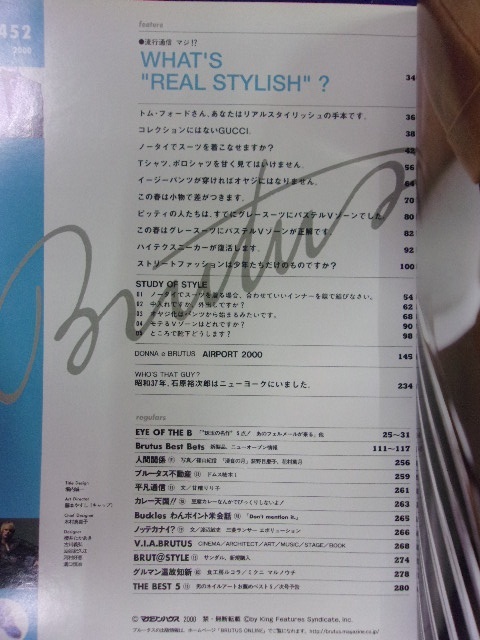 452
2000
feature
●流行通信 マジ!?
WHAT'S
"REAL STYLISH" ? 34
トム・フォードさん、あなたはリアルスタイリッシュの手本です。 36
コレクションにはないGUCCI. 38
ノータイでスーツを着こなせますか? 42
Tシャツ、ポロシャツを甘く見てはいけません。 56
イージーパンツが穿ければオヤジにはなりません。 64
この春は小物で差がつきます。 70
ピッティの人たちは、すでにグレースーツにパステルVゾーンでした。 80
この春はグレースーツにパステルVゾーンが正解です。 82
ハイテクスニーカーが復活します。 92
ストリートファッションは少年たちだけのものですか? 100
Brutus
STUDY OF STYLE
01 ノータイでスーツを着る場合、合わせていいインナーを線で結びなさい。 54
02 中入れですか、外出しですか? 62
03 オヤジ化はパンツから始まるみたいです。 68
04 モテるVゾーンはどれですか? 90
05 ところで靴下どうします? 98
DONNA o BRUTUS AIRPORT 2000 145
WHO'S THAT GUY?
昭和37年、石原裕次郎はニューヨークにいました。 234
regulars
EYE OF THE B 25〜31
Brutus Best Bets 新製品、ニューオープン情報 111〜117
人間関係 256
ブルータス不動産 ドムス絵本 259
平凡通信 261
カレー天国!! 263
Buckles わんポイント米会話 「Don't mention it.」 265
ノッテカナイ? 266
V.I.A.BRUTUS CINEMA/ARCHITECT/ART/MUSIC/STAGE/BOOK 268
BRUT@STYLE サンダル、新規購入 274
グルマン温故知新 278
THE BEST 5 男のネイルアートお薦めベスト5/次号予告 280
Title Design
Art Director
Chief Designer
Designer
© マガジンハウス 2000 禁・無断転載 ©by King Features Syndicate, Inc.
ブルータスの出版情報は、ホームページ「BRUTUS ONLINE」でご覧になれます。http://brutus.magazine.co.jp/